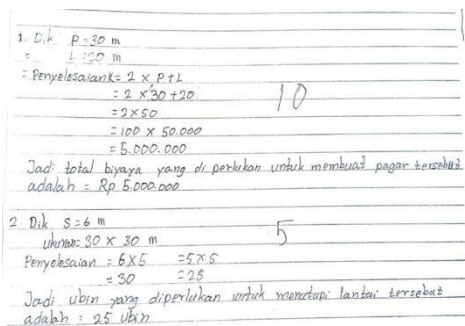 1. Dik P = 30 m
= L = 20 m
= Penyelesaian K = 2 x P+L
= 2 x 30 + 20
= 2 x 50
= 100 x 50.000
= 5.000.000
10
Jadi total biyaya yang di perlukan untuk membuat pagar tersebut
adalah = Rp 5.000.000
2. Dik S = 6 m
ukuran = 30 x 30 m
5
Penyelesaian = 6 x 5 = 5 x 5
= 30 = 25
Jadi ubin yang diperlukan untuk menutupi lantai tersebut
adalah : 25 ubin